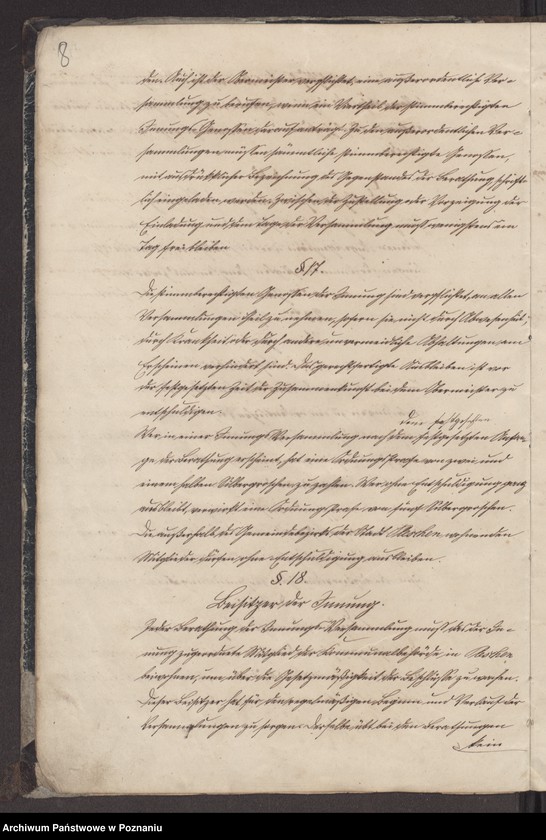 8
den. Auch ist der Obermeister verpflichtet, eine außerordentliche Ver-
sammlung zu berufen, wenn ein Viertheil der stimmberechtigten
Innungs-Genossen darauf anträgt. Zu den außerordentlichen Ver-
sammlungen müssen sämmtliche stimmberechtigte Genossen,
mit ausdrücklicher Bezeichnung des Gegenstandes der Berathung, schrift-
lich eingeladen werden. Zwischen der Zustellung oder Vorzeigung der
Einladung und dem Tage der Versammlung muß wenigstens ein
Tag frei bleiben
§ 17.
Die stimmberechtigten Genossen der Innung sind verpflichtet, an allen
Versammlungen theil zu nehmen, sofern sie nicht durch Abwesenheit,
durch Krankheit oder durch andere unvermeidliche Abhaltungen am
Erscheinen verhindert sind. Das gerechtfertigte Ausbleiben ist vor
der festgesetzten Zeit der Zusammenkunft bei dem Obermeister zu
entschuldigen.
dem festgesetzten
Wer in einer Innungs-Versammlung nach dem festgesetzten
der Berathung erscheint, hat eine Ordnungsstrafe von zwei und
einem halben Silbergroschen zu zahlen. Wer ohne Entschuldigung ganz
ausbleibt, verwirkt eine Ordnungsstrafe von fünf Silbergroschen.
Die außerhalb des Gemeindebezirks der Stadt wohnenden
Mitglieder dürfen, ohne Entschuldigung ausbleiben.
§. 18.
Beisitzer der Innung.
Jeder Berathung der Innungs-Versammlung muß das der In-
nung zugeordnete Mitglied der Kommunalbehörde in
beiwohnen, um über die Gesetzmäßigkeit der Beschlüsse zu wachen.
Dieser Beisitzer hat für den regelmäßigen Beginn und Verlauf der
Versammlungen zu sorgen. Derselbe übt bei den Berathungen
kein
Archiwum Państwowe w Poznaniu
szukajwarchiwach.gov.pl